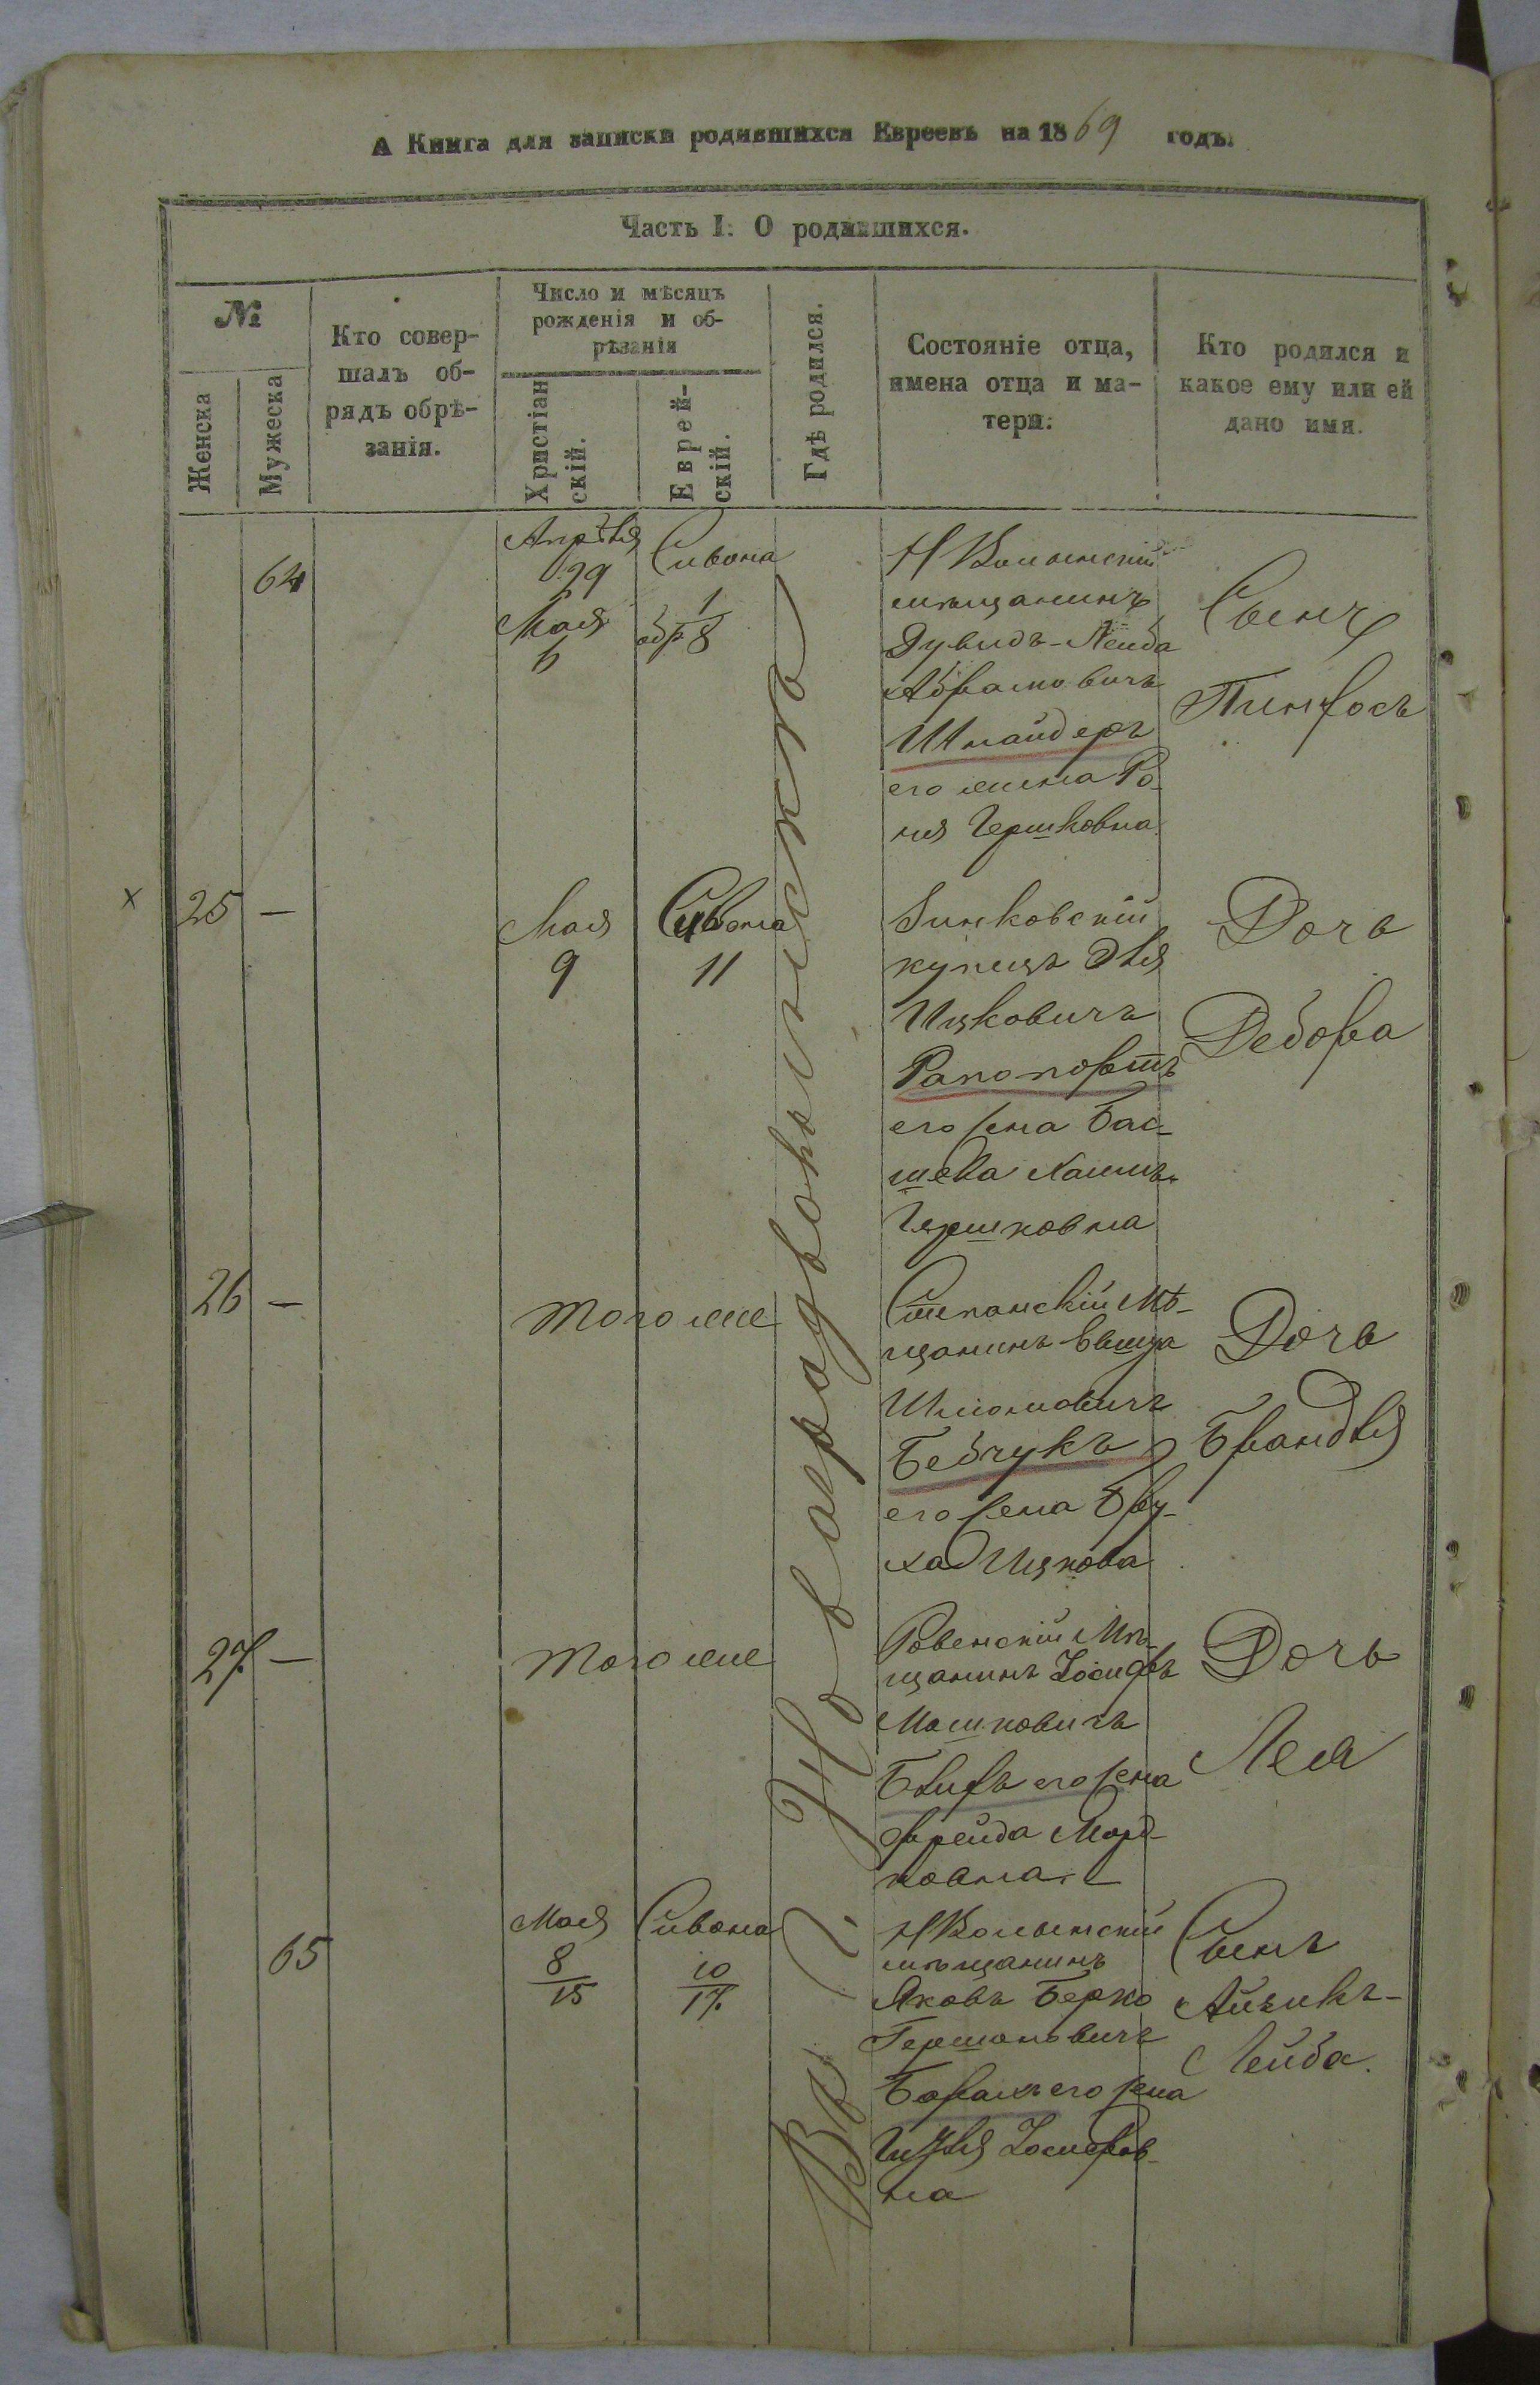 А Книга для записки родившихся Евреевъ на 1869 годъ.
Часть I. О родившихся.
№
Женска
Мужеска
Кто совер-
шалъ об-
рядъ обрѣ-
занія.
Число и мѣсяцъ
рожденія и об-
рѣзанія
Христіан
скій.
Еврей-
скій.
Гдѣ родился.
Состояніе отца,
имена отца и ма-
тери.
Кто родился и
какое ему или ей
дано имя.
В г. Новоградволынскѣ
64
Апрѣля
29
Мая
6
Сивона
1
обр. 8
НВолынскій
мѣщанинъ
Дувидъ-Лейба
Абрамовичъ
Шнайдеръ
его жена Ро-
ня Гершковна
Сынъ
Пинхосъ
х 25 —
Мая
9
Сивона
11
Зинковскій
купецъ Эля
Ицковичъ
Рапопортъ
его жена Бас-
шева Хаимъ-
Гершковна
Дочь
Дебора
26 —
того же
Степанскій Мѣ-
щанинъ
Шлиомовичъ
Бебчукъ
его жена Бру-
ха Ицкова
Дочь
Брандля
27 —
того же
Ровенскій Мѣ-
щанинъ Іосифъ
Мошковичъ
его жена
Фрейда Морд-
ковна
Дочь
Лея
65
Мая
8
15
Сивона
10
17
НВолынскій
мѣщанинъ
Яковъ Берко
Гершоновичъ
его жена
Іосифов-
на
Сынъ
Айзикъ-
Лейба.